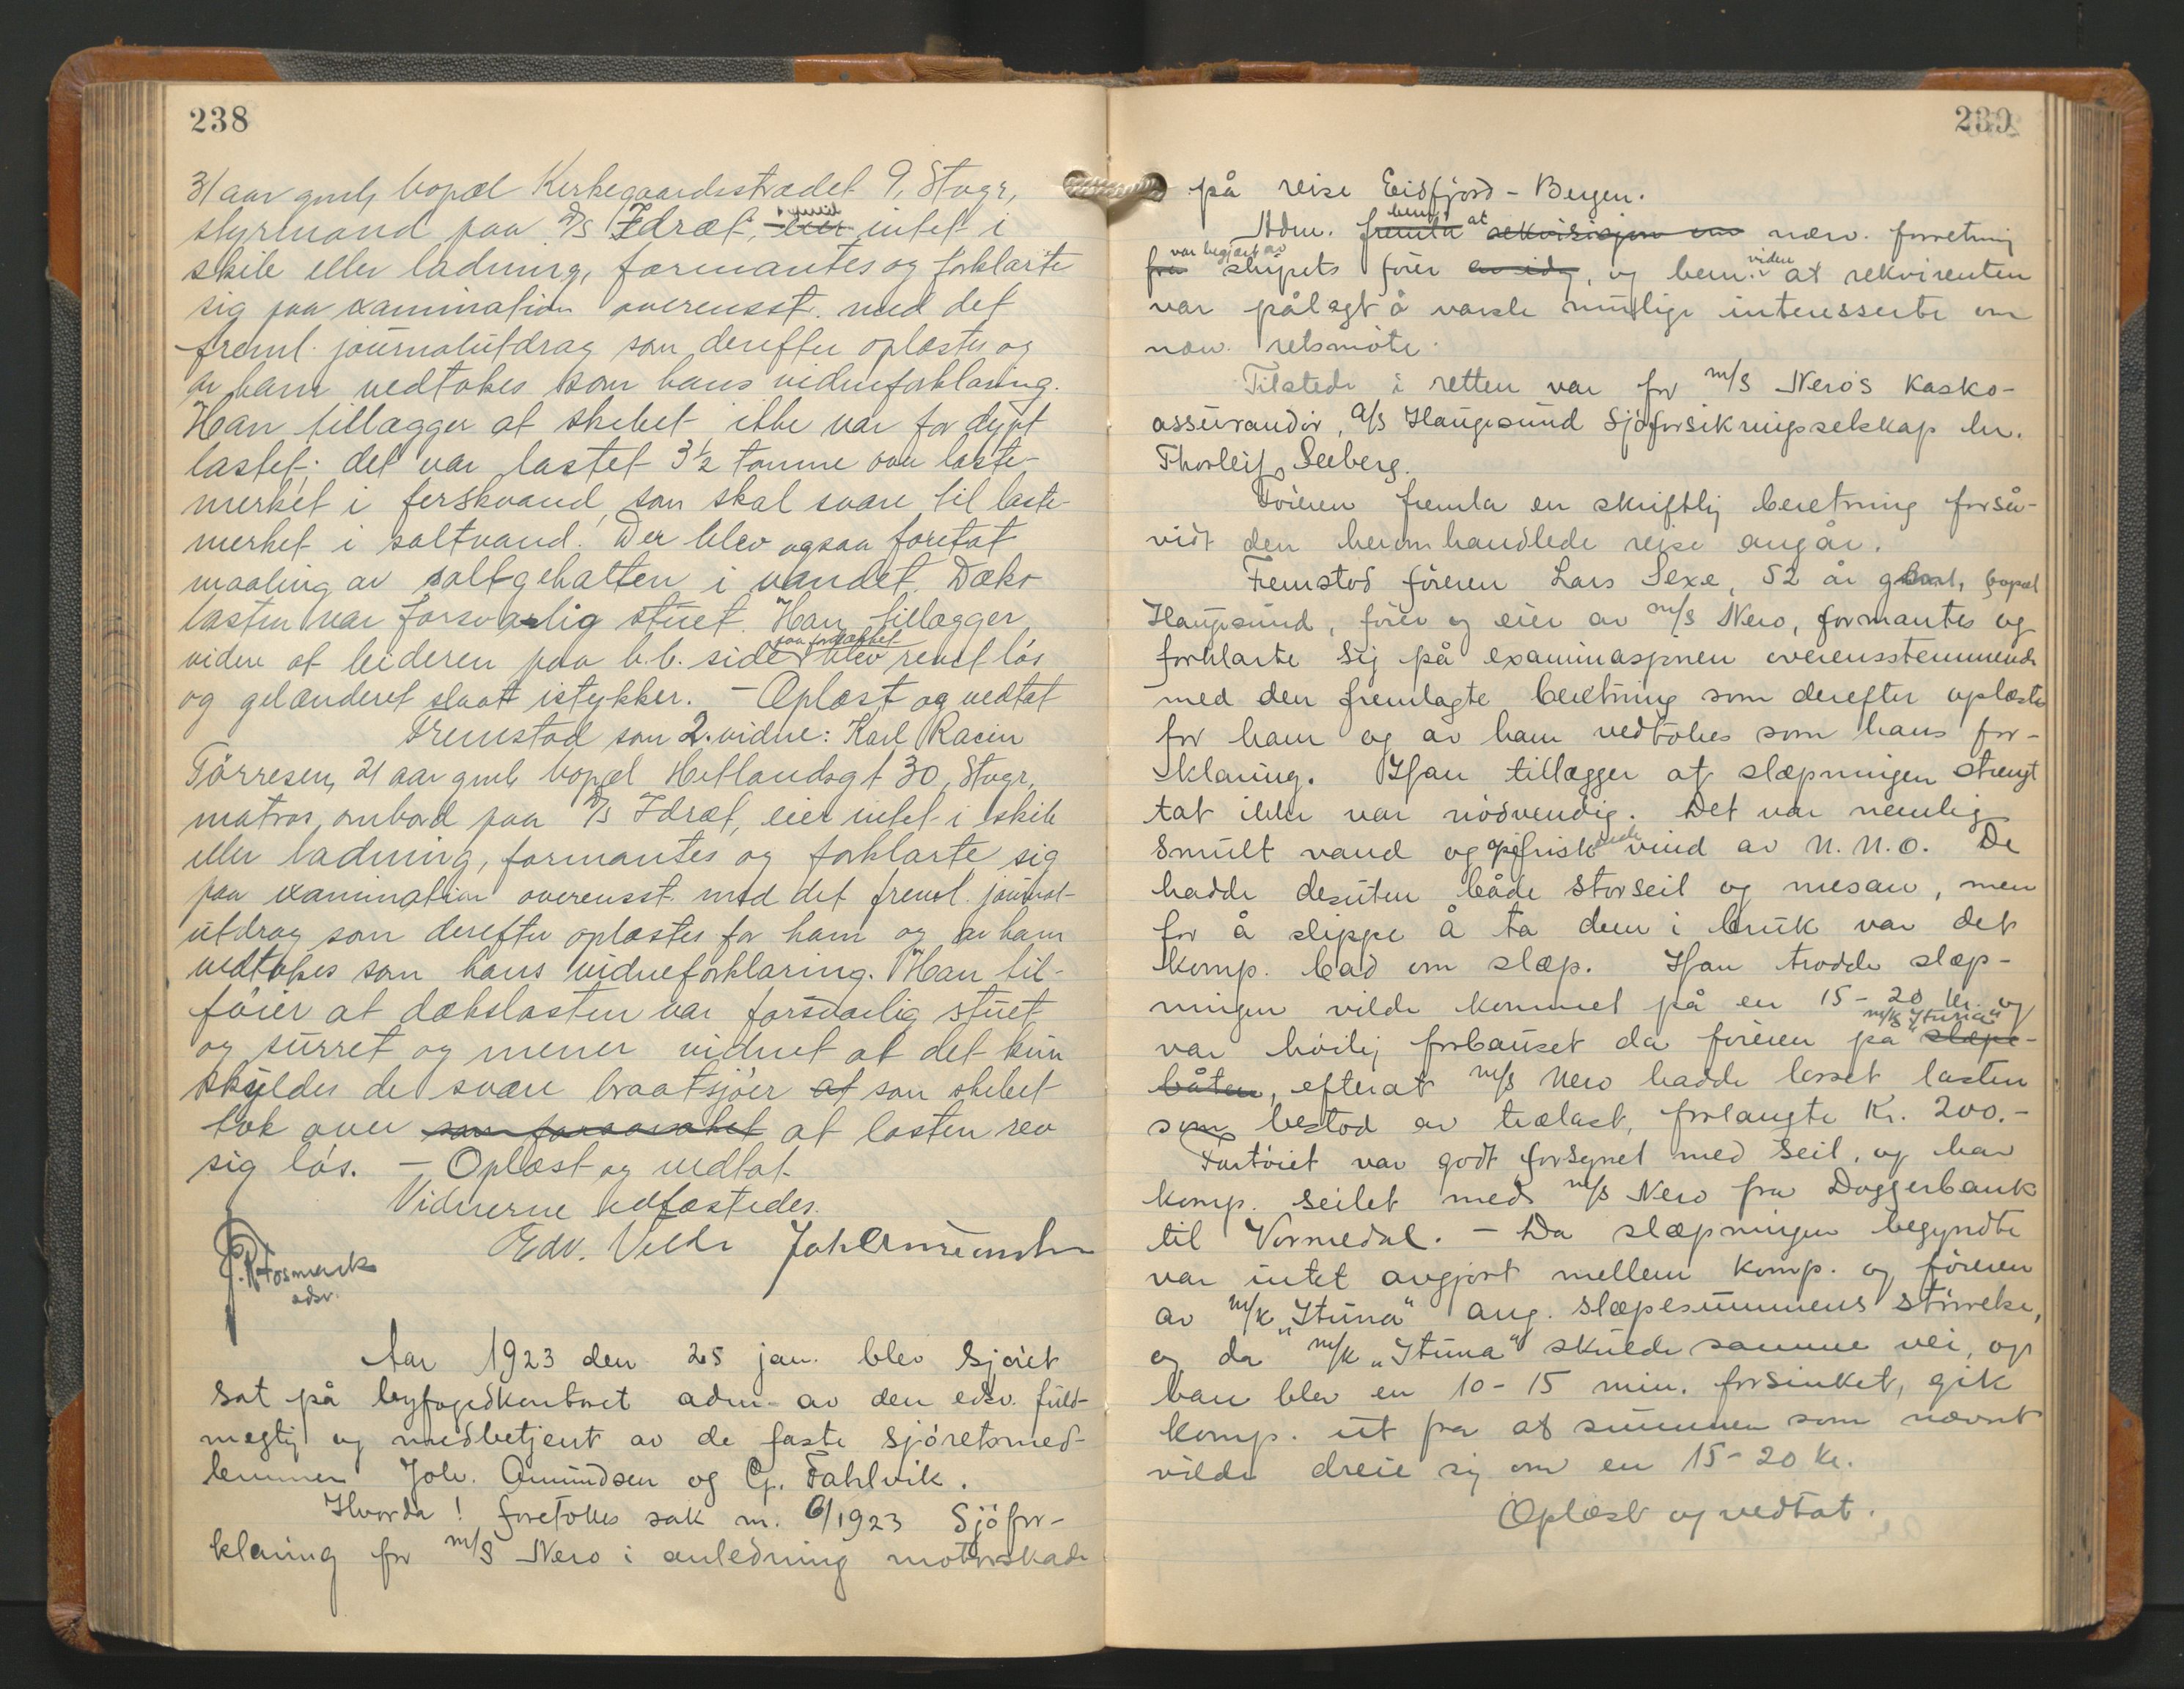 238
31 aar gml, bopæl Kirkegaardsstrædet 9, Stvgr,
styrmand paa D/S Idræt, eier intet i
skib eller ladning, formantes og forklarte
sig paa examination overensst. med det
freml. journalutdrag som derefter oplæstes og
av ham vedtokes som hans vidneforklaring.
Han tillægger at skibet ikke var for dypt
lastet; det var lastet 3½ tomme over laste-
merket i ferskvand, som skal svare til laste-
merket i saltvand. Der blev ogsaa foretat
maaling av saltgehalten i vandet. Dæks-
lasten var forsvarlig stuet. Han tillægger
videre at leideren paa b.b. side paa fordækket blev revet løs
og gelænderet slaat istykker. – Oplæst og vedtat
Fremstod som 2. vidne: Karl Racin
Tørresen, 21 aar gml, bopæl Hetlandsgt 30, Stvgr,
matros ombord paa D/S Idræt, eier intet i skib
eller ladning, formantes og forklarte sig
paa examination overensst. med det freml. journal-
utdrag som derefter oplæstes for ham og av ham
vedtokes som hans vidneforklaring. Han til-
føier at dækslasten var forsvarlig stuet
og surret og mener vidnet at det kun
skyldes de svære braatsjøer at som skibet
tok over som foraarsaket at lasten rev
sig løs. – Oplæst og vedtat
Vidnerne edfæstedes.
Edv. Vilde Joh Amundsen
J. R. Fosmark
adv.
Aar 1923 den 25 jan. blev sjøret
sat på byfogedkontoret adm. av den edsv. fuld-
mægtig og medbetjent av de faste sjøretsmed-
lemmer Joh. Amundsen og G. Fahlvik.
Hvorda! foretokes sak nr. 6/1923 Sjøfor-
klaring for m/s Nero i anledning motorskade
239
på reise Eidfjord - Bergen.
Adm. fremla bem. at rekvisisjon om nærv. forretning
fra var begjært av skipets fører, og bem. videre at rekvirenten
var pålagt å varsle mulige interesserte om
nærv. retsmøte.
Tilstede i retten var for m/s Nero's kasko-
assurandør, A/S Haugesund Sjøforsikringsselskap hr.
Thorleif Seeberg.
Føreren fremla en skriftlig beretning forså-
vidt den heromhandlede reise angår.
Fremstod føreren Lars Sexe, 52 år gammel, bopæl
Haugesund, fører og eier av m/s Nero, formantes og
forklarte sig på examinasjonen overensstemmende
med den fremlagte beretning som derefter oplæstes
for ham og av ham vedtokes som hans for-
klaring. Han tillægger at slæpningen strengt
tat ikke var nødvendig. Det var nemlig
smult vand og opfriskende vind av N.N.O. De
hadde desuten både storseil og mesan, men
for å slippe å ta dem i bruk var det
komp. bad om slæp. Han trodde slæp-
ningen vilde kommet på en 15 - 20 kr. og
var høilig forbauset da føreren på m/k "Ituna" slæpe-
båten, efterat m/s Nero hadde losset lasten
som bestod av trælast, forlangte Kr. 200.-
Fartøiet var godt forsynet med seil, og har
komp. seilet med m/s Nero fra Doggerbank
til Vormedal. – Da slæpningen begyndte
var intet avgjort mellem komp. og føreren
av m/k "Ituna" ang. slæpesummens størrelse,
og da m/k "Ituna" skulde samme vei, og
han blev en 10 - 15 min. forsinket, gik
komp. ut fra at summen som nævnt
vilde dreie sig om en 15 - 20 kr.
Oplæst og vedtat.